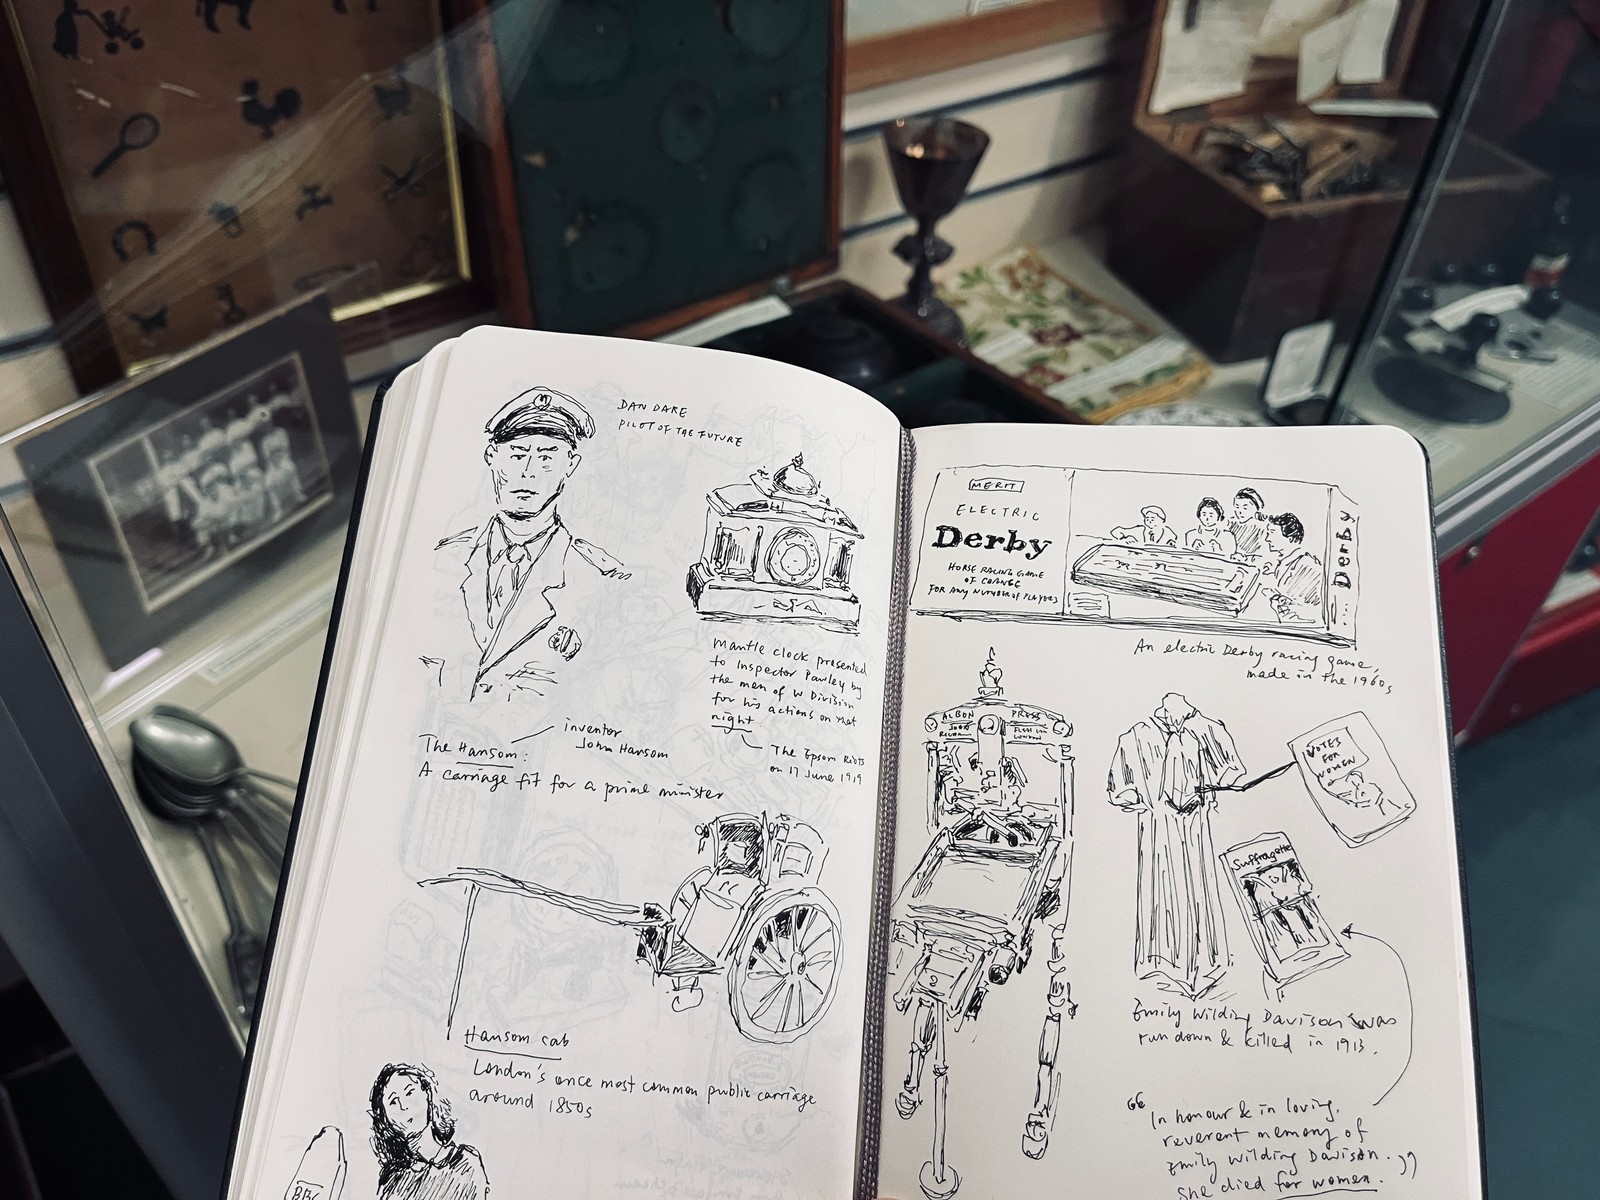 DAN DARE
PILOT OF THE FUTURE
Mantle clock presented
to Inspector Pawley by
the men of W Division
for his actions on that
night
The Epsom Riots
on 17 June 1919
inventor
John Hansom
The Hansom:
A carriage fit for a prime minister
Hansom cab
London's once most common public carriage
around 1850s
BBC
MERIT
ELECTRIC
Derby
HORSE RACING GAME
OF CHANCE
FOR ANY NUMBER OF PLAYERS
Derby
An electric Derby racing game,
made in the 1960s
ALBION
PRESS
LONDON
VOTES
FOR
WOMEN
Suffragette
Emily Wilding Davison was
run down & killed in 1913.
“In honour & in loving,
reverent memory of
Emily Wilding Davison.”
She died for women.